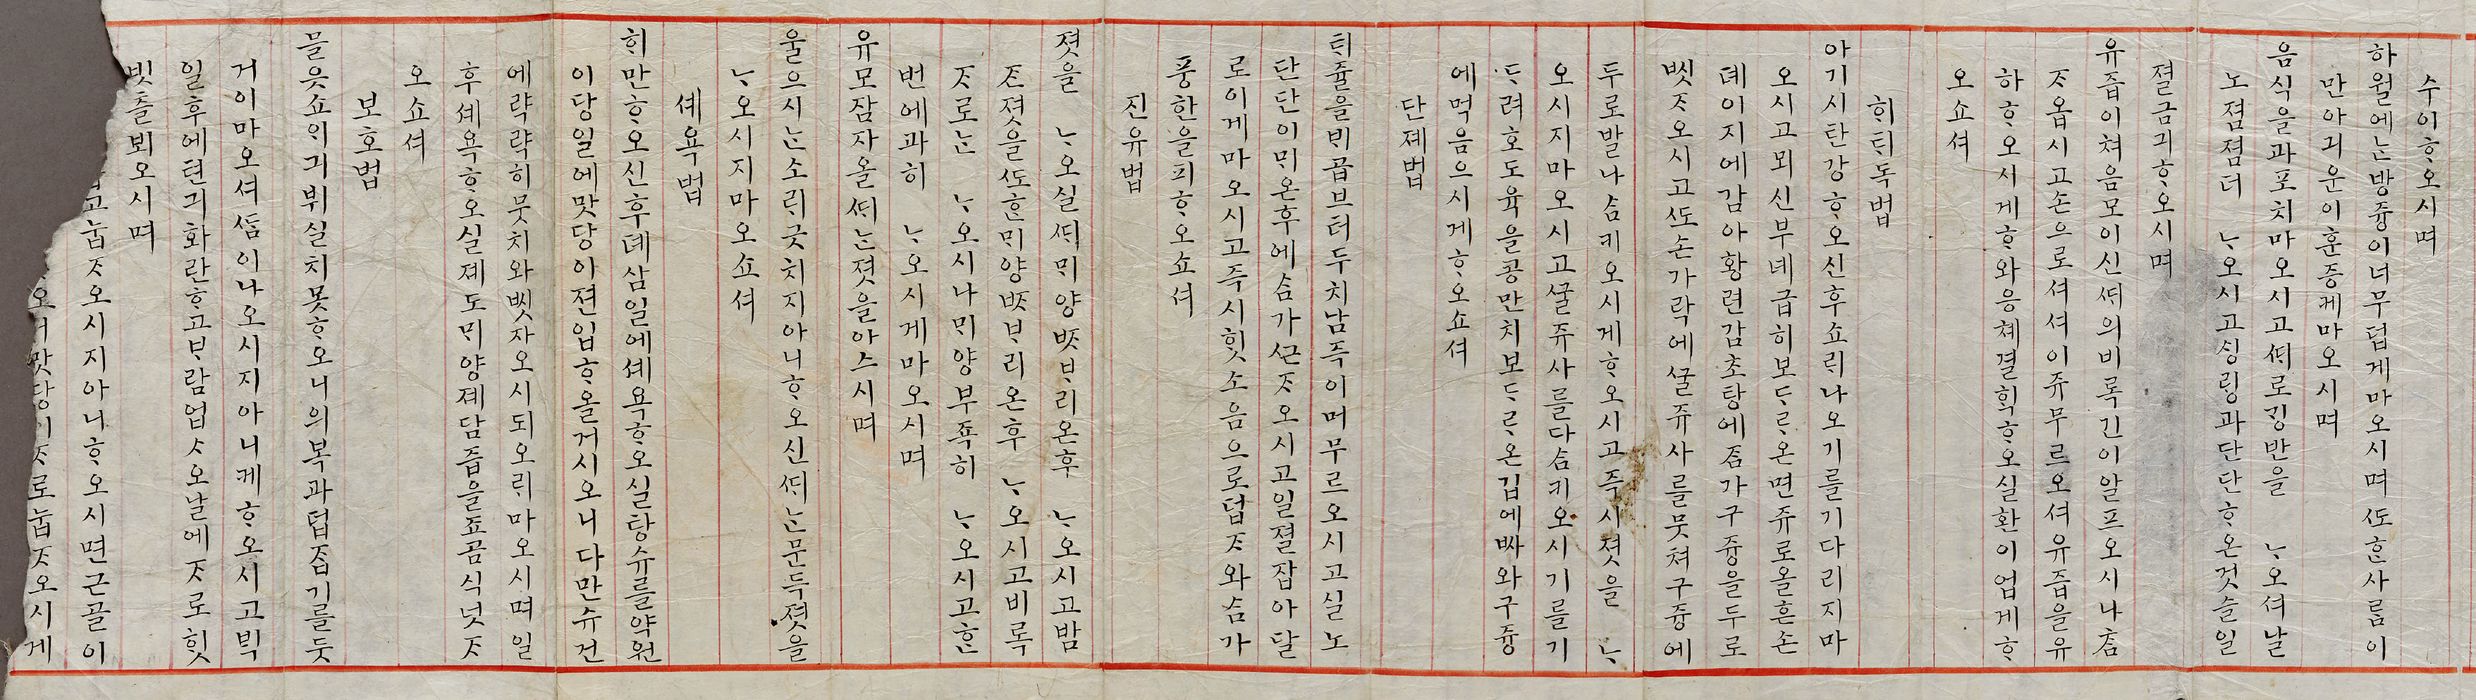 수이ᄒᆞ오시며
하월에ᄂᆞᆫ방즁이너무덥게마오시며ᄯᅩᄒᆞᆫ사ᄅᆞᆷ이
만아긔운이훈증케마오시며
음식을과포치마오시고ᄯᅢ로깅반을 ᄂᆞ오셔날
노졈졈더 ᄂᆞ오시고ᄉᆡᆼᄅᆡᆼ과단단ᄒᆞ온것슬일
졀금긔ᄒᆞ오시며
유즙이쳐음모이신ᄯᅢ의비록긴이알프오시나ᄎᆞᆷ
ᄌᆞ옵시고손으로셔셔이쥬무르오셔유즙을유
하ᄒᆞ오시게ᄒᆞ와응쳬결ᄒᆡᆨᄒᆞ오실환이업게ᄒᆞ
오쇼셔
ᄒᆡᄐᆡ독법
아기시탄강ᄒᆞ오신후쇼ᄅᆡ나오기를기다리지마
오시고뫼신부녜급히보ᄃᆞ라온면쥬로올흔손
뎨이지에감아황련감초탕에ᄌᆞᆷ가구즁을두로
ᄡᅵᆺᄌᆞ오시고ᄯᅩ손가락에ᄭᅮᆯ쥬사를뭇쳐구즁에
두로발나ᄉᆞᆷ키오시게ᄒᆞ오시고즉시졋을 ᄂᆞ
오시지마오시고ᄭᅮᆯ쥬사를다ᄉᆞᆷ키오시기를기
ᄃᆞ려호도육을콩만치보ᄃᆞ라온깁에ᄡᅡ와구즁
에먹음으시게ᄒᆞ오쇼셔
단졔법
ᄐᆡ쥴을ᄇᆡᆨ곱브터두치남즉이머무르오시고실노
단단이ᄆᆡ온후에ᄉᆞᆷ가ᄭᅳᆫᄌᆞ오시고일졀잡아달
로이게마오시고즉시ᄒᆡᆺ소음으로덥ᄌᆞ와ᄉᆞᆷ가
풍한을피ᄒᆞ오쇼셔
진유법
졋을 ᄂᆞ오실ᄯᅢᄆᆡ양ᄧᅡᄇᆞ리온후 ᄂᆞ오시고밤
ᄌᆞᆫ졋을ᄯᅩᄒᆞᆫᄆᆡ양ᄧᅡᄇᆞ리온후 ᄂᆞ오시고비록
ᄌᆞ로ᄂᆞᆫ ᄂᆞ오시나ᄆᆡ양부죡히 ᄂᆞ오시고ᄒᆞᆫ
번에과히 ᄂᆞ오시게마오시며
유모잠자올ᄯᅢᄂᆞᆫ졋을아스시며
울으시ᄂᆞᆫ소ᄅᆡ긋치지아니ᄒᆞ오신ᄯᅢᄂᆞᆫ문득졋을
ᄂᆞ오시지마오쇼셔
셰욕법
ᄒᆡ만ᄒᆞ오신후뎨삼일에셰욕ᄒᆞ오실탕슈를약원
이당일에맛당이젼입ᄒᆞ올거시오니다만슈건
에략략히뭇치와ᄡᅵᆺ자오시되오ᄅᆡ마오시며일
후셰욕ᄒᆞ오실졔도ᄆᆡ양졔담즙을죠곰식넛ᄌᆞ
오쇼셔
보호법
믈읏쇼ᄋᆡ긔뷔실치못ᄒᆞ오니의복과덥ᄌᆞᆸ기를둣
거이마오셔ᄯᆞᆷ이나오시지아니케ᄒᆞ오시고ᄇᆡᆨ
일후에텬긔화란ᄒᆞ고ᄇᆞ람업ᄉᆞ오날에ᄌᆞ로ᄒᆡᆺ
빗츨뵈오시며
고눕ᄌᆞ오시지아니ᄒᆞ오시면근골이
맛당이ᄌᆞ로눕ᄌᆞ오시게